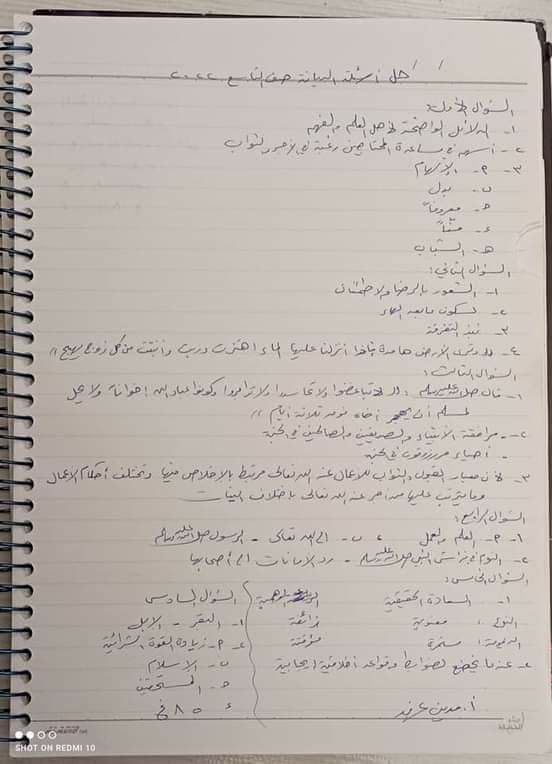 حل أسئلة الديانة صف التاسع ٢٠٢٢
السؤال الأول:
١- الدلائل الواضحة لأهل العلم والفهم
٢- أسهم في مساعدة المحتاجين رغبة في الأجر والثواب
٣- ٩- الإلهام
ب- بدل
ح- معروفاً
ء-
هـ- الشباب
السؤال الثاني:
١- الشعور بالرضا والاطمئنان
٢- لسكون مابعد الهاء
٣- نبذ التفرقة
٤- وترى الأرض هامدة فإذا أنزلنا عليها الماء اهتزت وربت وأنبتت من كل زوج بهيج
السؤال الثالث:
١- قال صلى الله عليه وسلم: لا تباغضوا ولا تحاسدوا ولا تدابروا وكونوا عباد الله إخواناً ولا يحل
لمسلم أن يهجر أخاه فوق ثلاثة أيام
٢- مرافقة الأنبياء والصديقين والصالحين في الجنة
- أحياء مرزوقون في الجنة
٣- لأن معيار القبول والثواب للأعمال عند الله تعالى مرتبط بالإخلاص فيها وتختلف أحكام الأعمال
وما يترتب عليها من أجر عند الله تعالى باختلاف النيات
السؤال الرابع:
١- ٩- العلم والعمل ، ب- الله تعالى - الرسول صلى الله عليه وسلم
٢- النوم في فراش النبي صلى الله عليه وسلم - رد الأمانات إلى أصحابها
السؤال الخامس:
١- السعادة الحقيقية الوهمية
النوع: معنوية زائفة
الديمومة: مستمرة مؤقتة
٢- عندما يخضع لضوابط وقواعد أخلاقية إيجابية
أ. مدين
السؤال السادس
١- البقر - الإبل
٢- ٩- زيادة القوة الشرائية
ب- الإسلام
ح- المستحقين
ء ٨٥ غ
SHOT ON REDMI 10